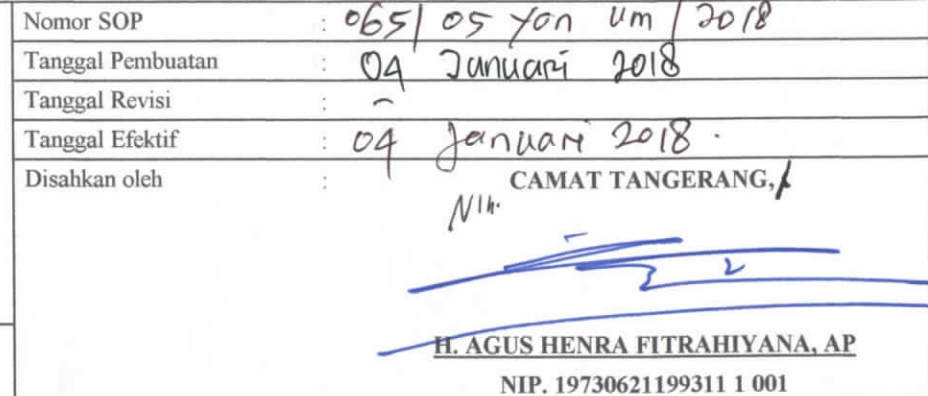 Nomor SOP : 065/05 Yan Um/2018
Tanggal Pembuatan : 04 Januari 2018
Tanggal Revisi : -
Tanggal Efektif : 04 Januari 2018.
Disahkan oleh : CAMAT TANGERANG,
H. AGUS HENRA FITRAHIYANA, AP
NIP. 19730621199311 1 001